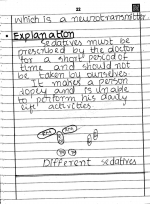 22
which is a neurotransmitter
• Explanation
Sedatives must be
prescribed by the doctor
for a short period of
time and should not
be taken by ourselves
It makes a person
sopey and is unable
to perform his daily
life activities
Different sedatives